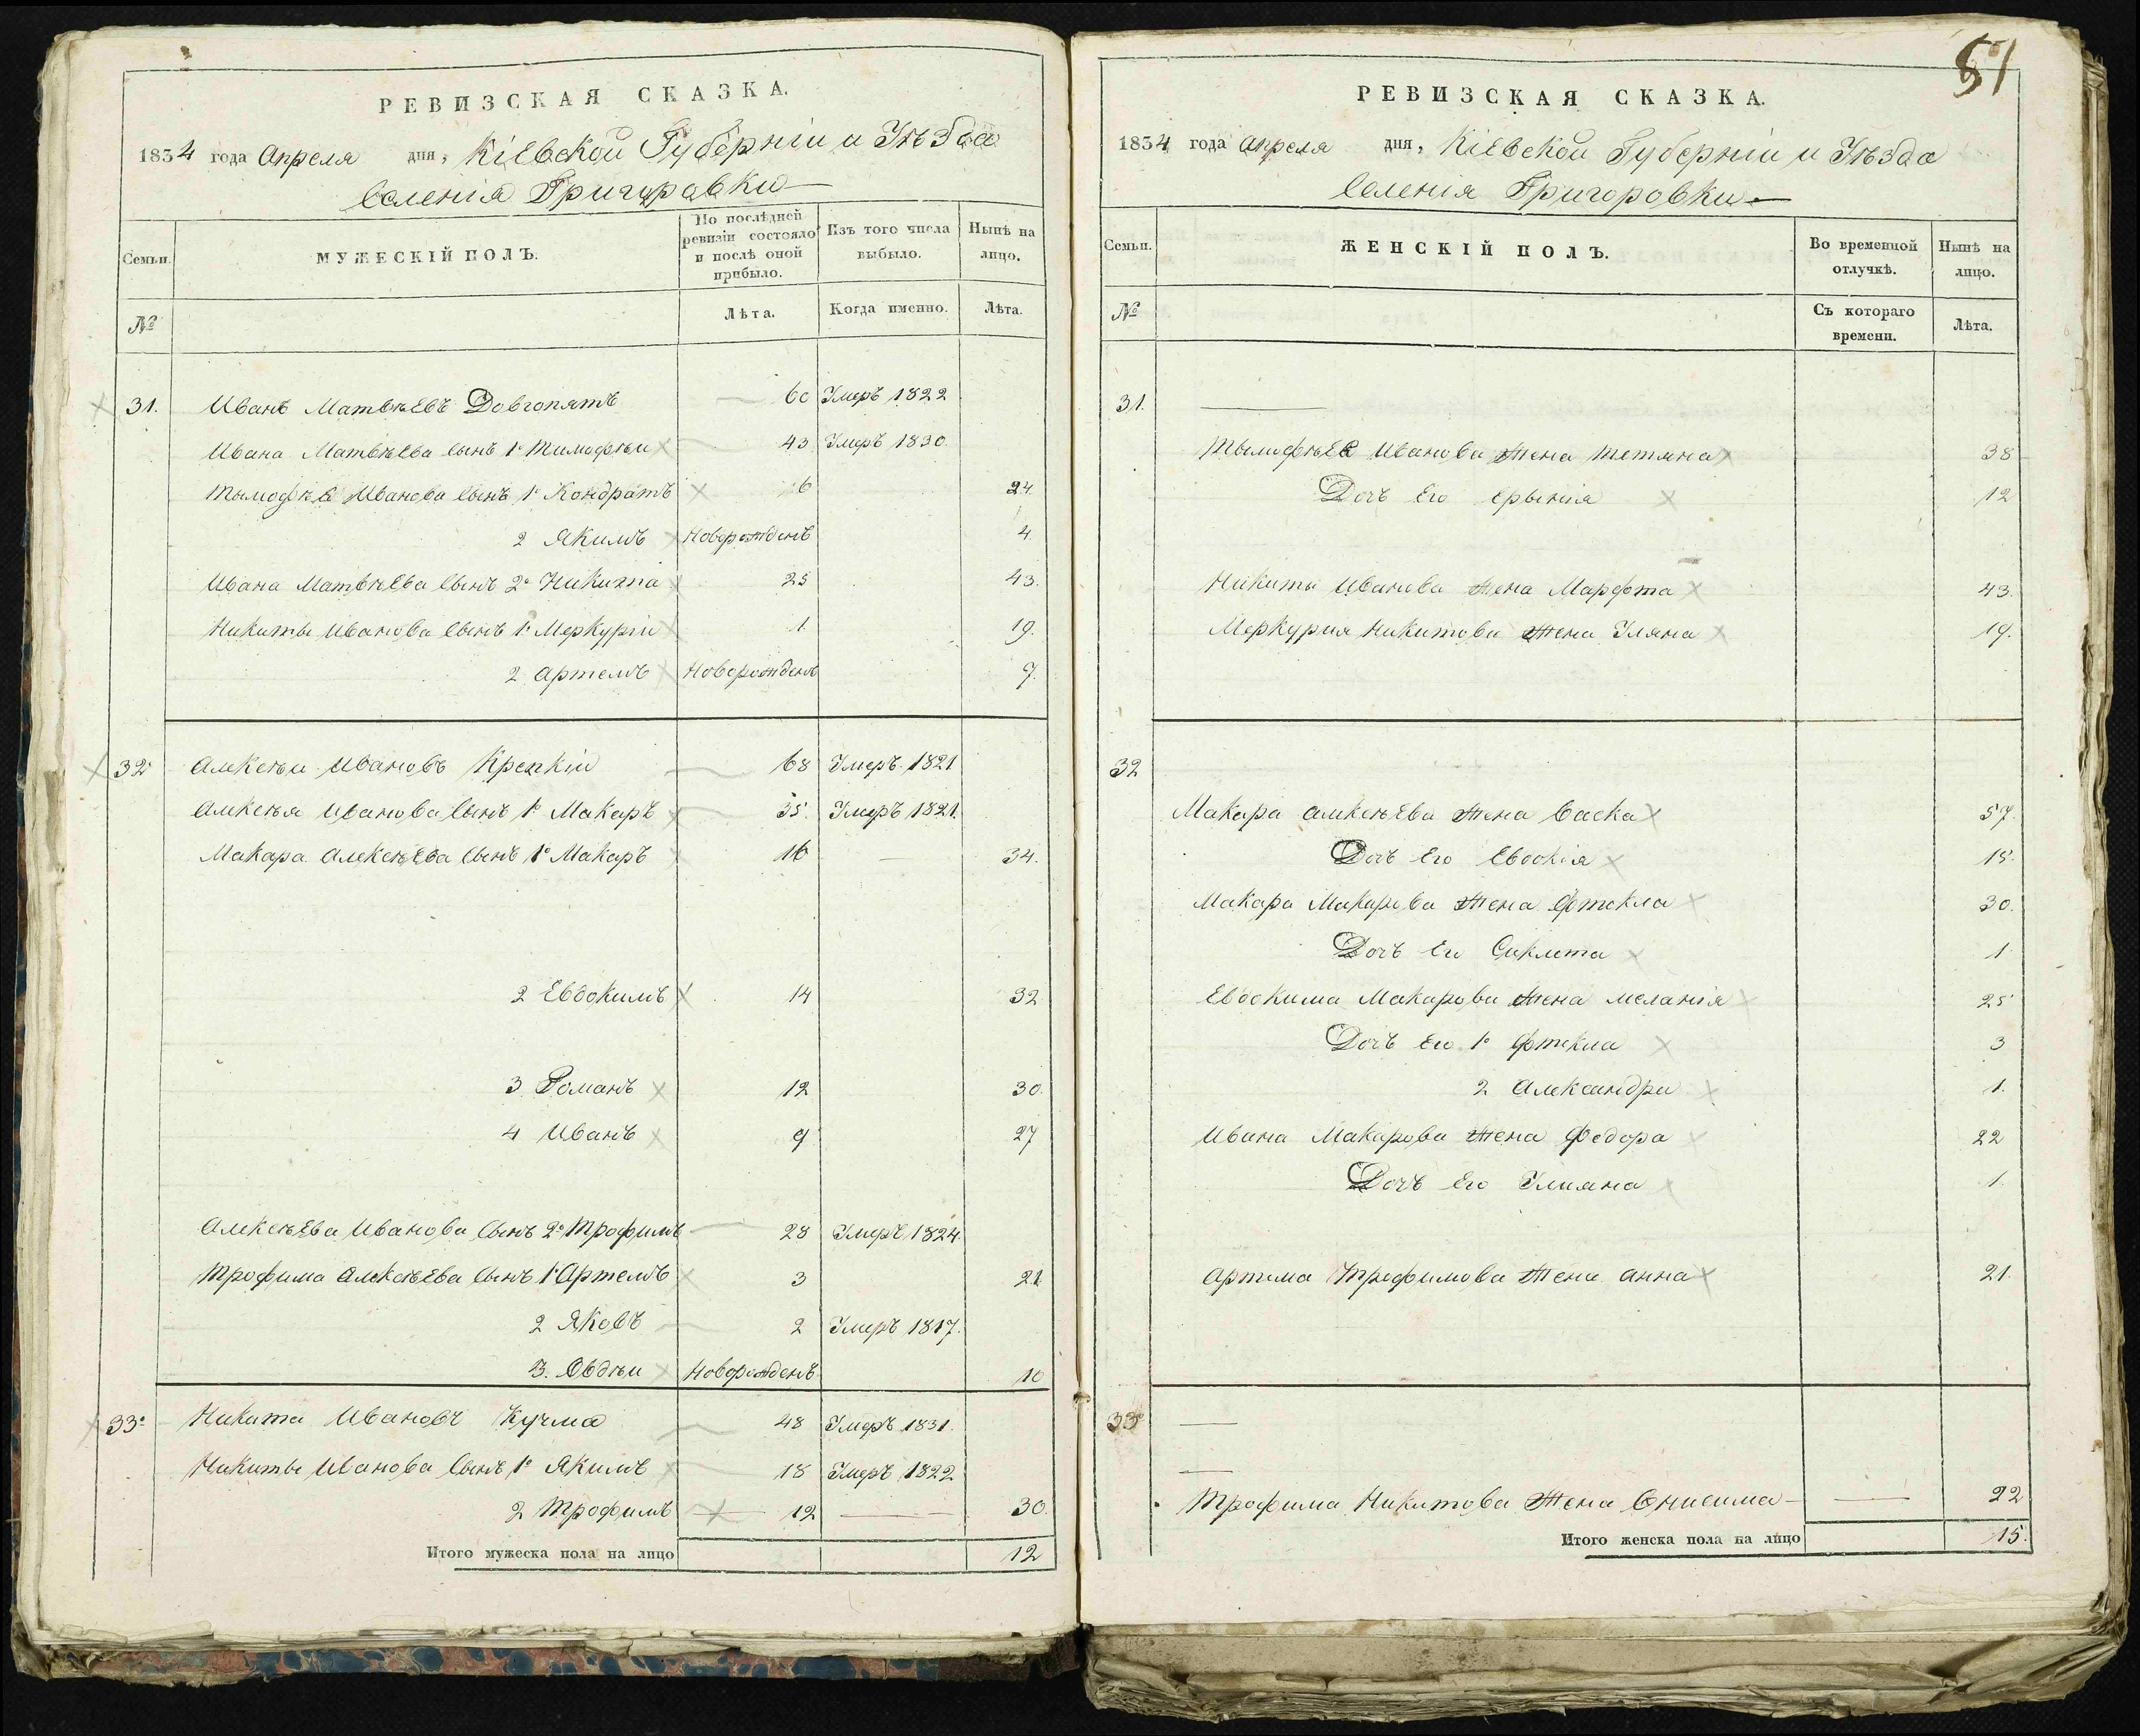 РЕВИЗСКАЯ СКАЗКА.
1834 года Апреля дня, Кіевской Губерніи и Уѣзда
Селенія Григоровки
Семьи. МУЖЕСКІЙ ПОЛЪ. По послѣдней ревизіи состояло и послѣ оной прибыло. Изъ того числа выбыло. Нынѣ на лицо.
№ Лѣта. Когда именно. Лѣта.
31. Иванъ Матвѣевъ Довгопятъ 60 Умеръ 1822
Ивана Матвѣева сынъ 1º Тимофѣи 43 Умеръ 1830.
Тымофѣя Иванова сынъ 1º Кондратъ 6 24.
2 Якимъ Новорожденъ 4.
Ивана Матвѣева сынъ 2º Никита 25 43.
Никиты Иванова сынъ 1º Меркуріи 1 19.
2 Артемъ Новорожденъ 9.
32 Алексѣи Ивановъ Крепкіи 68 Умеръ 1821
Алексѣя Иванова сынъ 1º Макаръ 35. Умеръ 1821.
Макара Алексѣева сынъ 1º Макаръ 16 34.
2 Евдокимъ 14 32
3 Романъ 12 30.
4 Иванъ 9 27
Алексѣева Иванова сынъ 2º Трофимъ 28 Умеръ 1824.
Трофима Алексѣева сынъ 1º Артемъ 3 21
2 Яковъ 2 Умеръ 1817.
3. Овдѣи Новорожденъ 10
33º Никита Ивановъ Кучма 48 Умеръ 1831.
Никиты Иванова сынъ 1º Якимъ 18 Умеръ 1822
2 Трофимъ 12 30.
Итого мужеска пола на лицо 12
51
РЕВИЗСКАЯ СКАЗКА.
1834 года Апреля дня, Кіевской Губерніи и Уѣзда
Селенія Григоровки
Семьи. ЖЕНСКІЙ ПОЛЪ. Во временной отлучкѣ. Нынѣ на лицо.
№ Съ котораго времени. Лѣта.
31.
Тымофѣея Иванова жена Тетяна 38
Дочъ Его Ерынія 12
Никиты Иванова жена Марфта 43.
Меркурия Никитова жена Уляна 19.
32
Макара Алексѣева жена Васка 57.
Дочъ Его Евдокія 15.
Макара Макарова жена Фтекла 30.
Дочъ Его Сиклета 1.
Евдокима Макарова жена Меланія 25
Дочъ Его 1º Фтекла 3
2 Александра 1.
Ивана Макарова жена Федора 22
Дочъ Его Улияна 1.
Артема Трофимова жена Анна 21.
33º
Трофима Никитова жена Онисима 22
Итого женска пола на лицо 15.